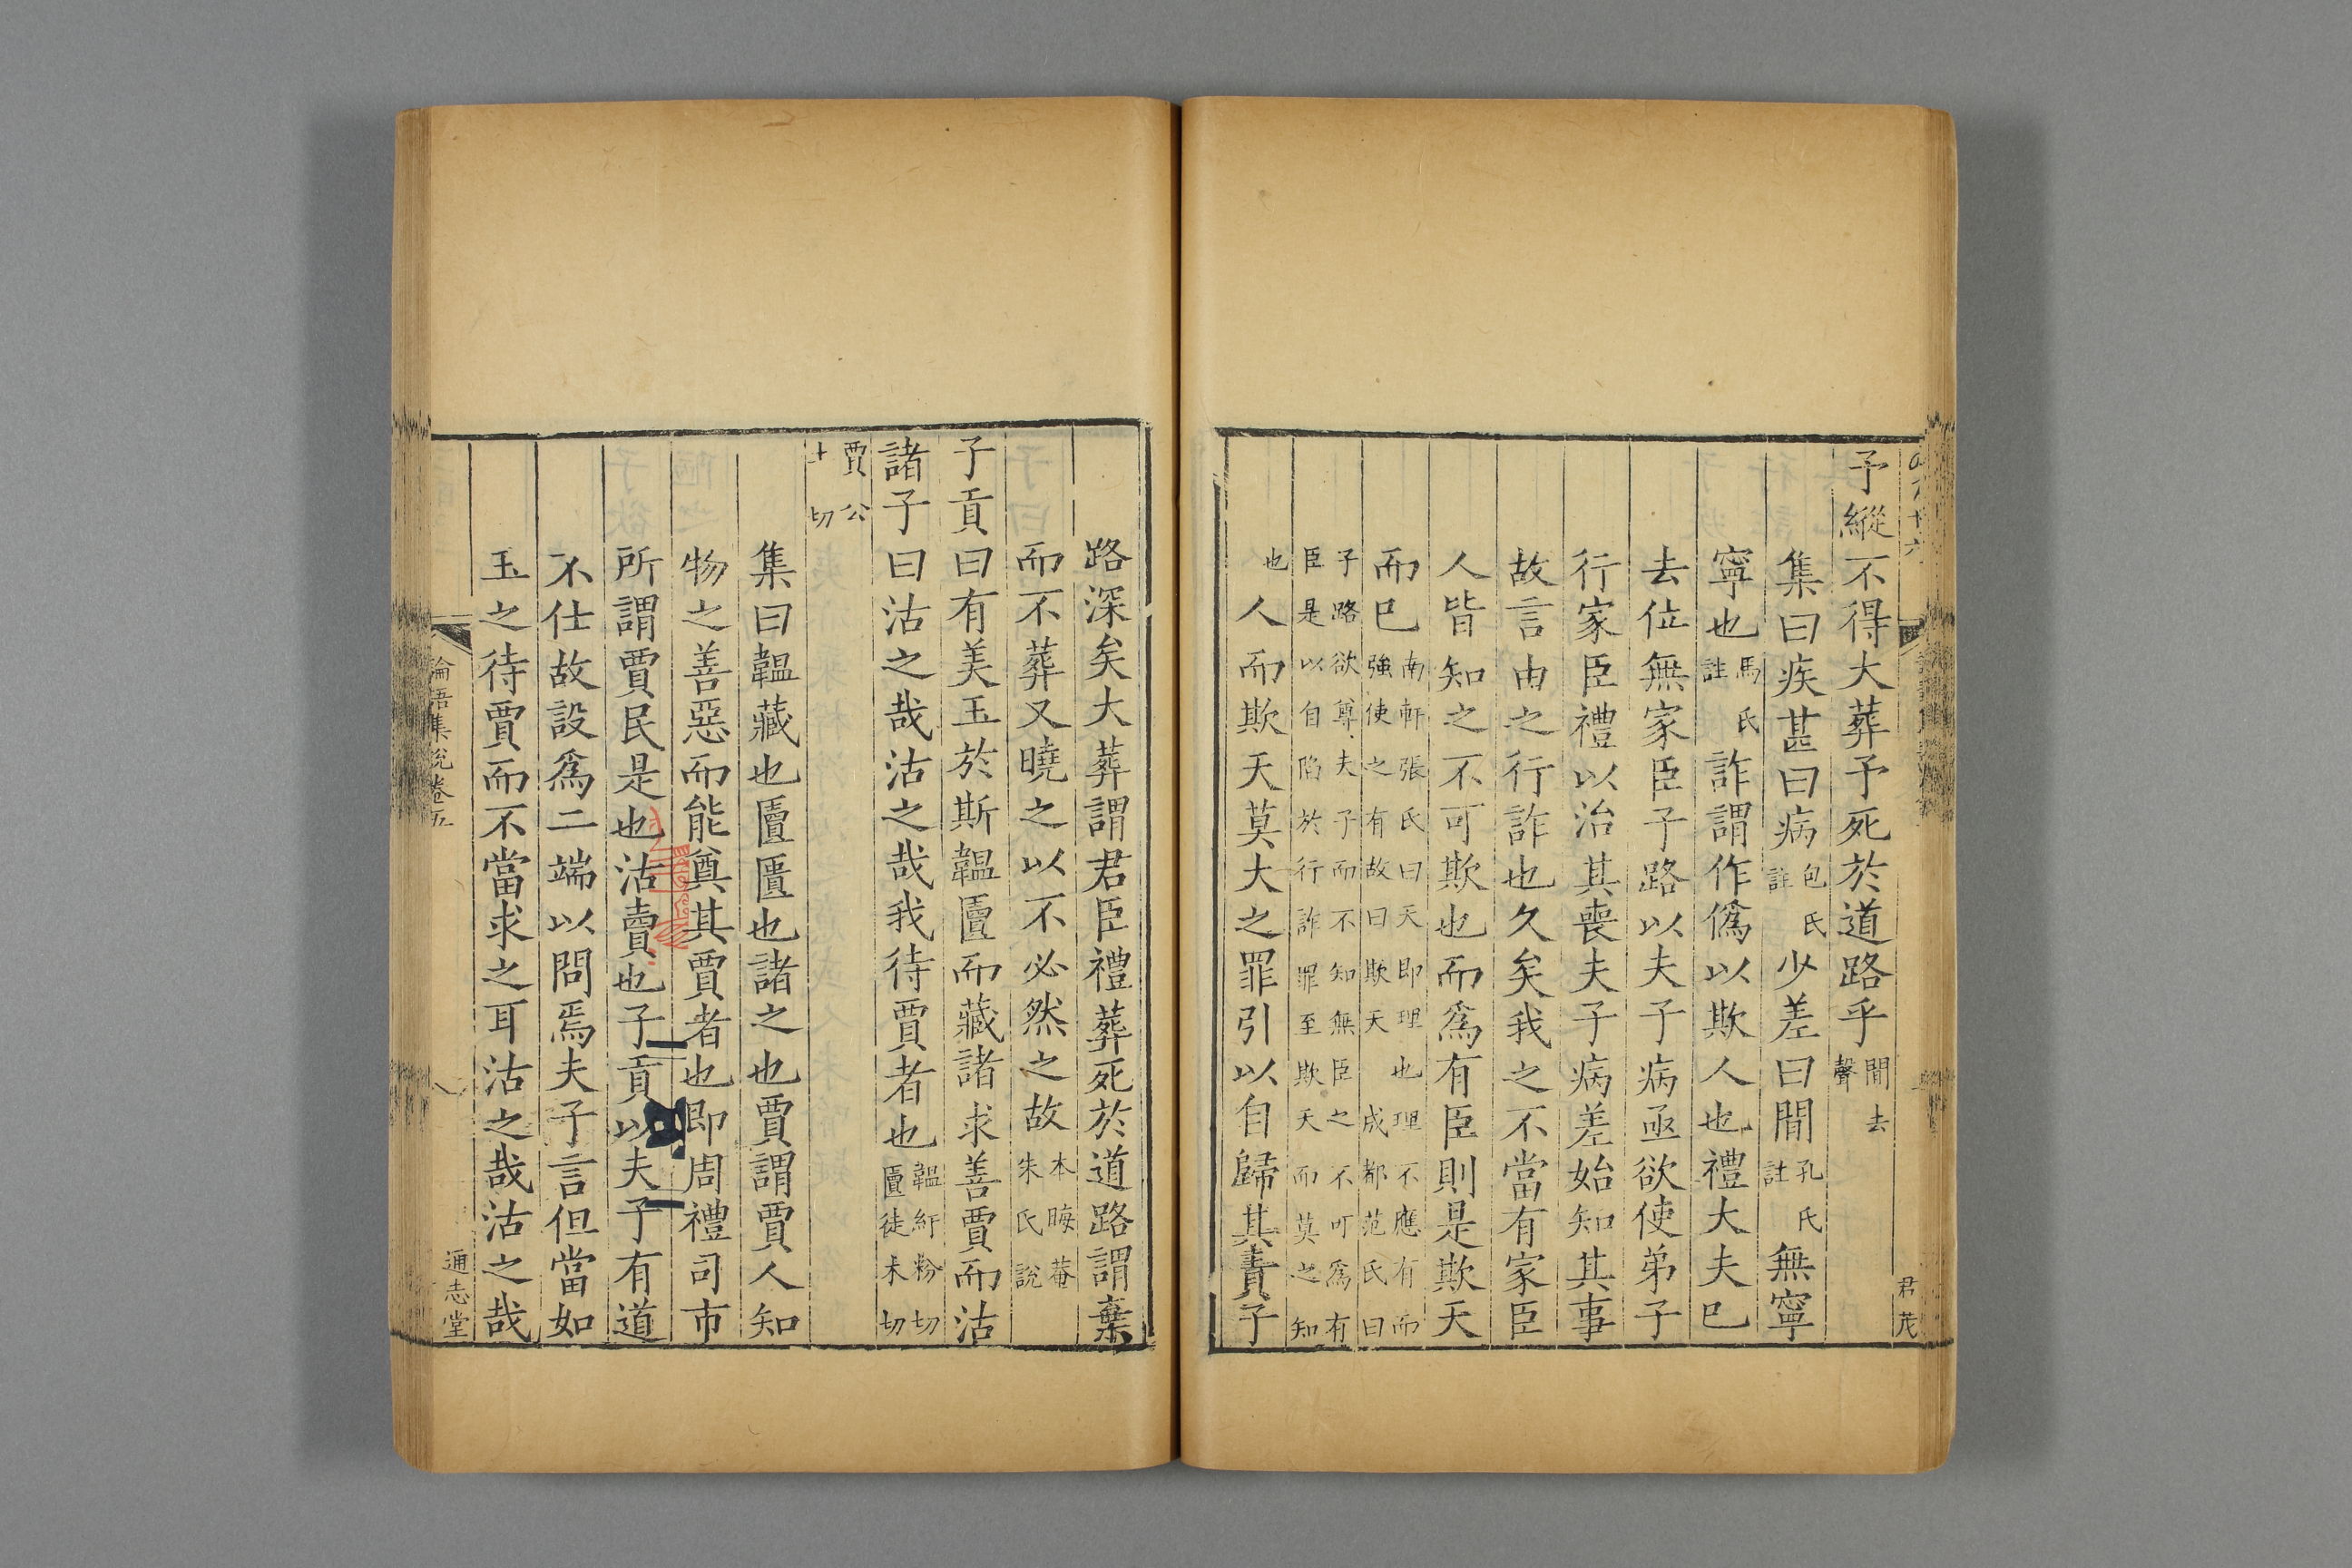 予縱不得大葬予死於道路乎閒去聲
集曰疾甚曰病包氏註少差曰閒孔氏註無寧
寧也馬氏註詐謂作僞以欺人也禮大夫已
去位無家臣子路以夫子病亟欲使弟子
行家臣禮以治其喪夫子病差始知其事
故言由之行詐也久矣我之不當有家臣
人皆知之不可欺也而爲有臣則是欺天
而已南軒張氏曰天即理也理不應有而強使之有故曰欺天 成都范氏曰
子路欲尊夫子而不知無臣之不可爲有臣是以自陷於行詐罪至欺天而莫之知
也人而欺天莫大之罪引以自歸其責子
君茂
路深矣大葬謂君臣禮葬死於道路謂棄
而不葬又曉之以不必然之故本晦菴朱氏說
子貢曰有美玉於斯韞匵而藏諸求善賈而沽
諸子曰沽之哉沽之哉我待賈者也韞紆粉切匵徒木切
賈公土切
集曰韞藏也匵匱也諸之也賈謂賈人知
物之善惡而能奠其賈者也即周禮司市
所謂賈民是也沽賣也子貢以夫子有道
不仕故設爲二端以問焉夫子言但當如
玉之待賈而不當求之耳沽之哉沽之哉
論語集說卷五
通志堂